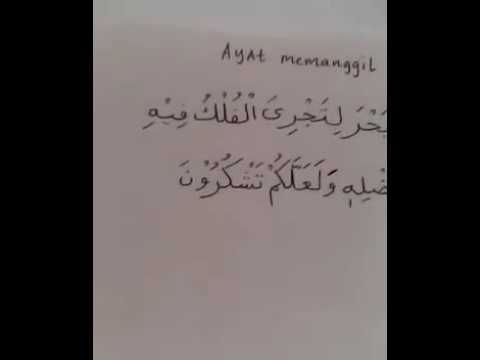 Ayat memanggil
لِتَجْرِىَ الْفُلْكُ فِيْهِ
وَلَعَلَّكُمْ تَشْكُرُوْنَ